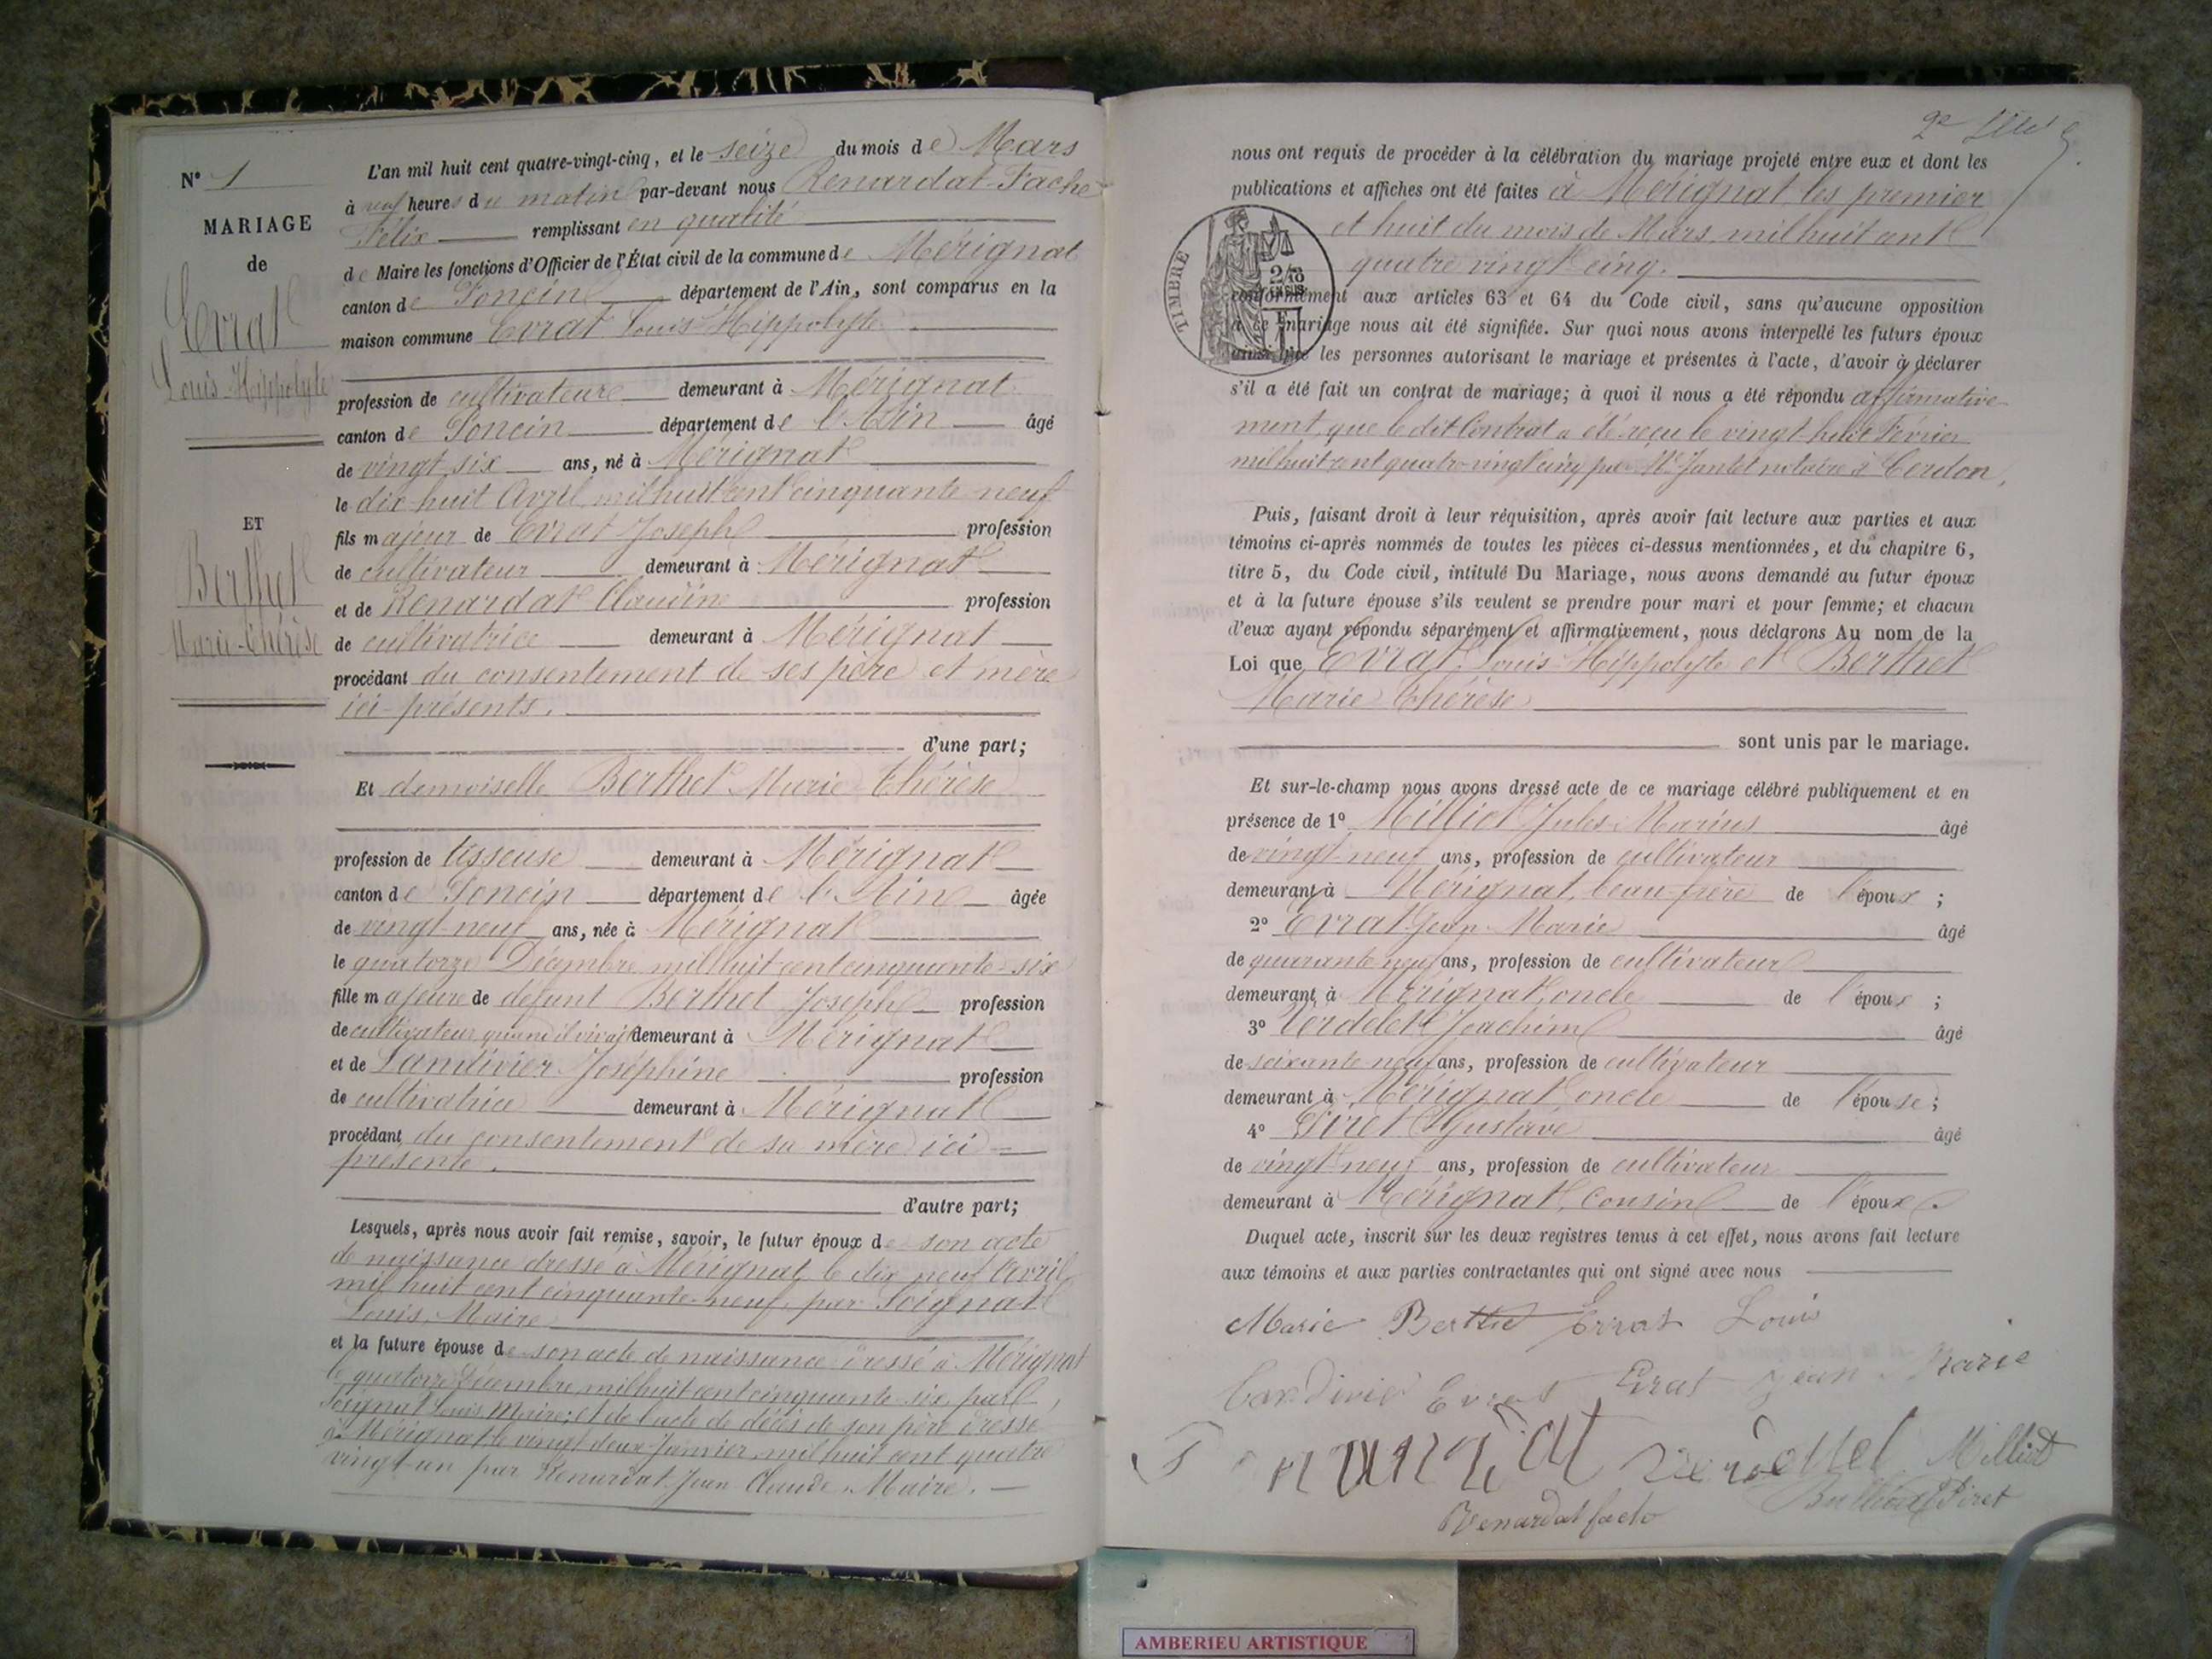 N° 1
MARIAGE
de
Evrat
Louis-Hippolyte
ET
Berthet
Marie-Thérèse
L'an mil huit cent quatre-vingt-cinq, et le seize du mois de Mars
à neuf heures du matin par-devant nous Renardat-Fache
Félix remplissant en qualité
de Maire les fonctions d'Officier de l'État civil de la commune de Mérignat
canton de Poncin département de l'Ain, sont comparus en la
maison commune Evrat Louis Hippolyte
profession de cultivateur demeurant à Mérignat
canton de Poncin département de l'Ain âgé
de vingt six ans, né à Mérignat
le dix huit Avril mil huit cent cinquante neuf
fils majeur de Evrat Joseph profession
de cultivateur demeurant à Mérignat
et de Renardat Claudine profession
de cultivatrice demeurant à Mérignat
procédant du consentement de ses père et mère
ici présents.
d'une part;
Et demoiselle Berthet Marie Thérèse
profession de tisseuse demeurant à Mérignat
canton de Poncin département de l'Ain âgée
de vingt-neuf ans, née à Mérignat
le quatorze Décembre mil huit cent cinquante-six
fille majeure de défunt Berthet Joseph profession
de cultivateur quand il vivait demeurant à Mérignat
et de Landivier Joséphine profession
de cultivatrice demeurant à Mérignat
procédant du consentement de sa mère ici
présente.
d'autre part;
Lesquels, après nous avoir fait remise, savoir, le futur époux de son acte
de naissance dressé à Mérignat le dix neuf Avril
mil huit cent cinquante-neuf, par Soignat
Louis, Maire
et la future épouse de son acte de naissance dressé à Mérignat
le quatorze Décembre mil huit cent cinquante-six, par
Soignat Louis Maire; et de l'acte de décès de son père dressé
à Mérignat le vingt deux Janvier mil huit cent quatre
vingt-un par Renardat Jean Claude, Maire.
2e
nous ont requis de procéder à la célébration du mariage projeté entre eux et dont les
publications et affiches ont été faites à Mérignat les premier
et huit du mois de Mars mil huit cent
quatre vingt cinq.
TIMBRE
conformément aux articles 63 et 64 du Code civil, sans qu'aucune opposition
à ce mariage nous ait été signifiée. Sur quoi nous avons interpellé les futurs époux
ainsi que les personnes autorisant le mariage et présentes à l'acte, d'avoir à déclarer
s'il a été fait un contrat de mariage; à quoi il nous a été répondu affirmative-
ment, que le dit Contrat a été reçu le vingt-huit Février
mil huit cent quatre-vingt cinq par Me Jantet notaire à Cerdon,
Puis, faisant droit à leur réquisition, après avoir fait lecture aux parties et aux
témoins ci-après nommés de toutes les pièces ci-dessus mentionnées, et du chapitre 6,
titre 5, du Code civil, intitulé Du Mariage, nous avons demandé au futur époux
et à la future épouse s'ils veulent se prendre pour mari et pour femme; et chacun
d'eux ayant répondu séparément et affirmativement, nous déclarons Au nom de la
Loi que Evrat Louis Hippolyte et Berthet
Marie Thérèse
sont unis par le mariage.
Et sur-le-champ nous avons dressé acte de ce mariage célébré publiquement et en
présence de 1° Milliot Jules Marius âgé
de vingt-neuf ans, profession de cultivateur
demeurant à Mérignat, beau-frère de l'époux ;
2° Evrat Jean-Marie âgé
de quarante neuf ans, profession de cultivateur
demeurant à Mérignat, oncle de l'époux ;
3° Verdelet Joachim âgé
de soixante-neuf ans, profession de cultivateur
demeurant à Mérignat oncle de l'épouse ;
4° Piret Gustave âgé
de vingt-neuf ans, profession de cultivateur
demeurant à Mérignat, Cousin de l'époux.
Duquel acte, inscrit sur les deux registres tenus à cet effet, nous avons fait lecture
aux témoins et aux parties contractantes qui ont signé avec nous
Marie Berthet Evrat Louis
Evrat Evrat Jean Marie
Milliot
Piret
Renardat fache
AMBERIEU ARTISTIQUE